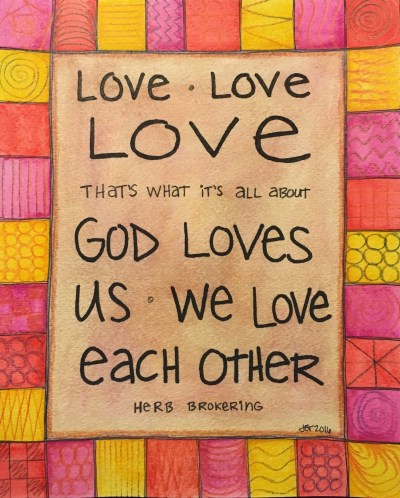 Love · Love
Love
THAT'S WHAT IT'S ALL ABOUT
GOD LOVES
US · We Love
each OTHER
HERB BROKERING
2016